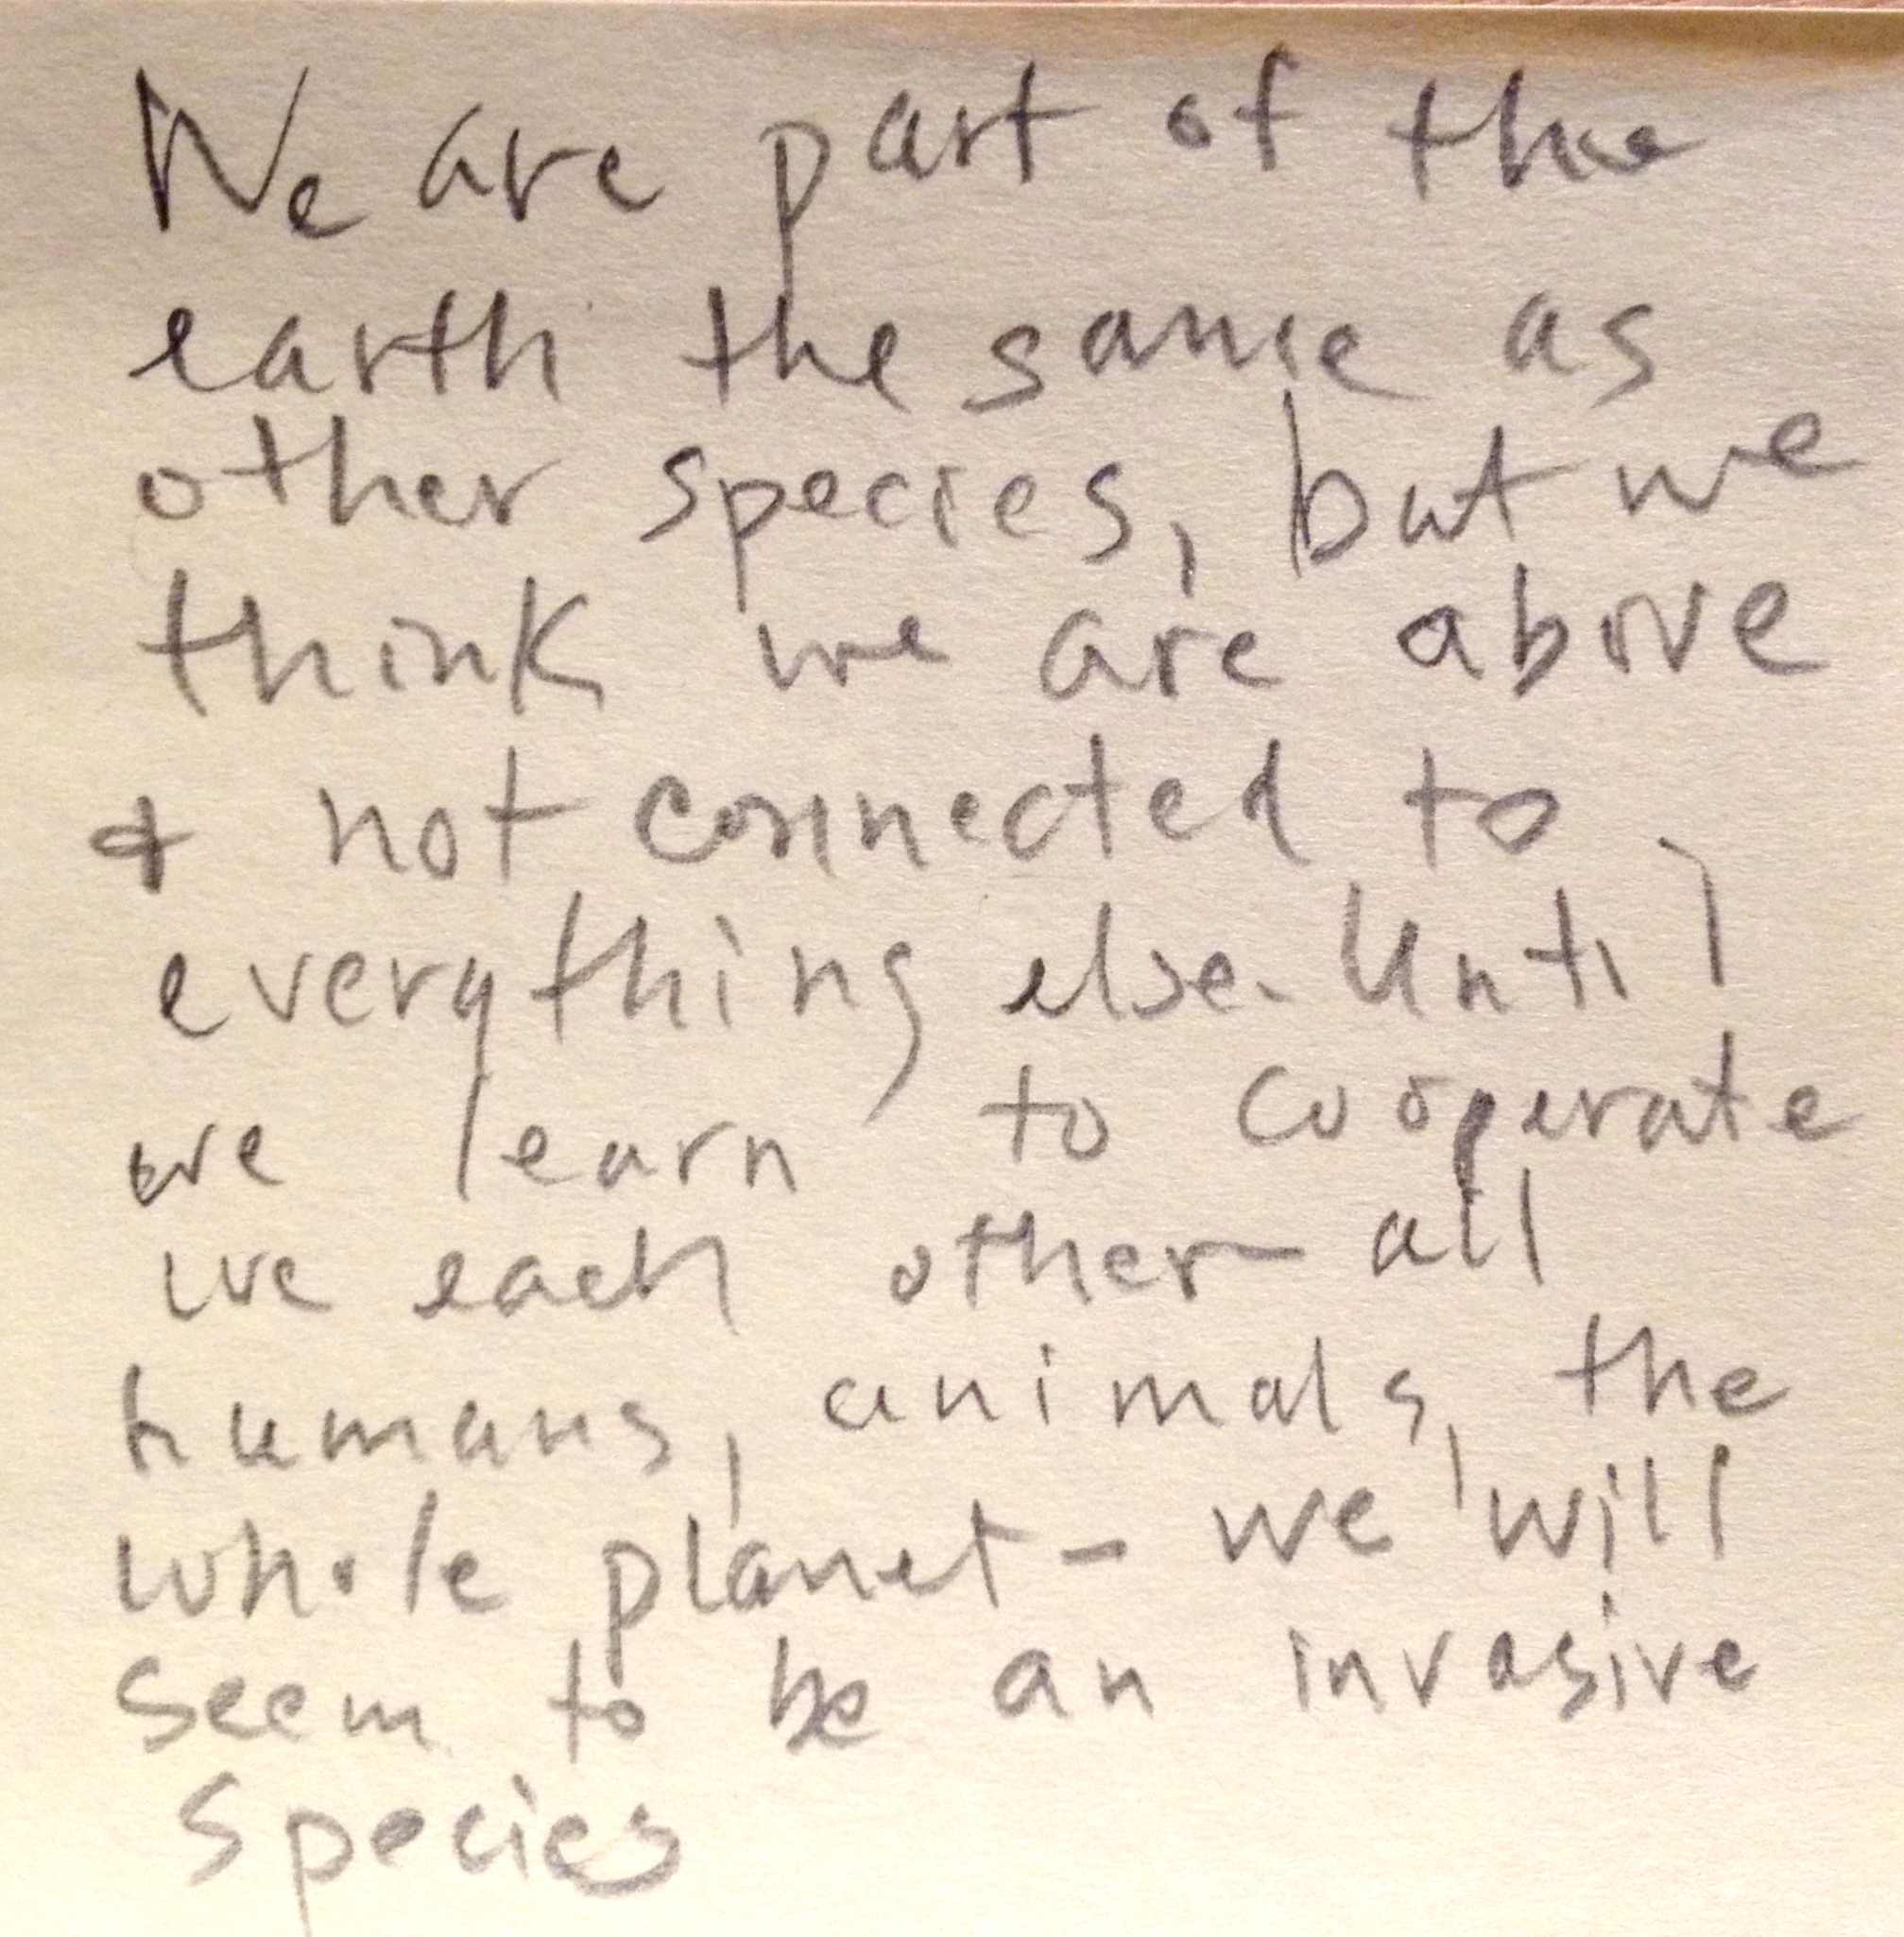 We are part of the
earth the same as
other species, but we
think we are above
+ not connected to
everything else. Until
we learn to cooperate
we each other - all
humans, animals, the
whole planet - we will
seem to be an invasive
species